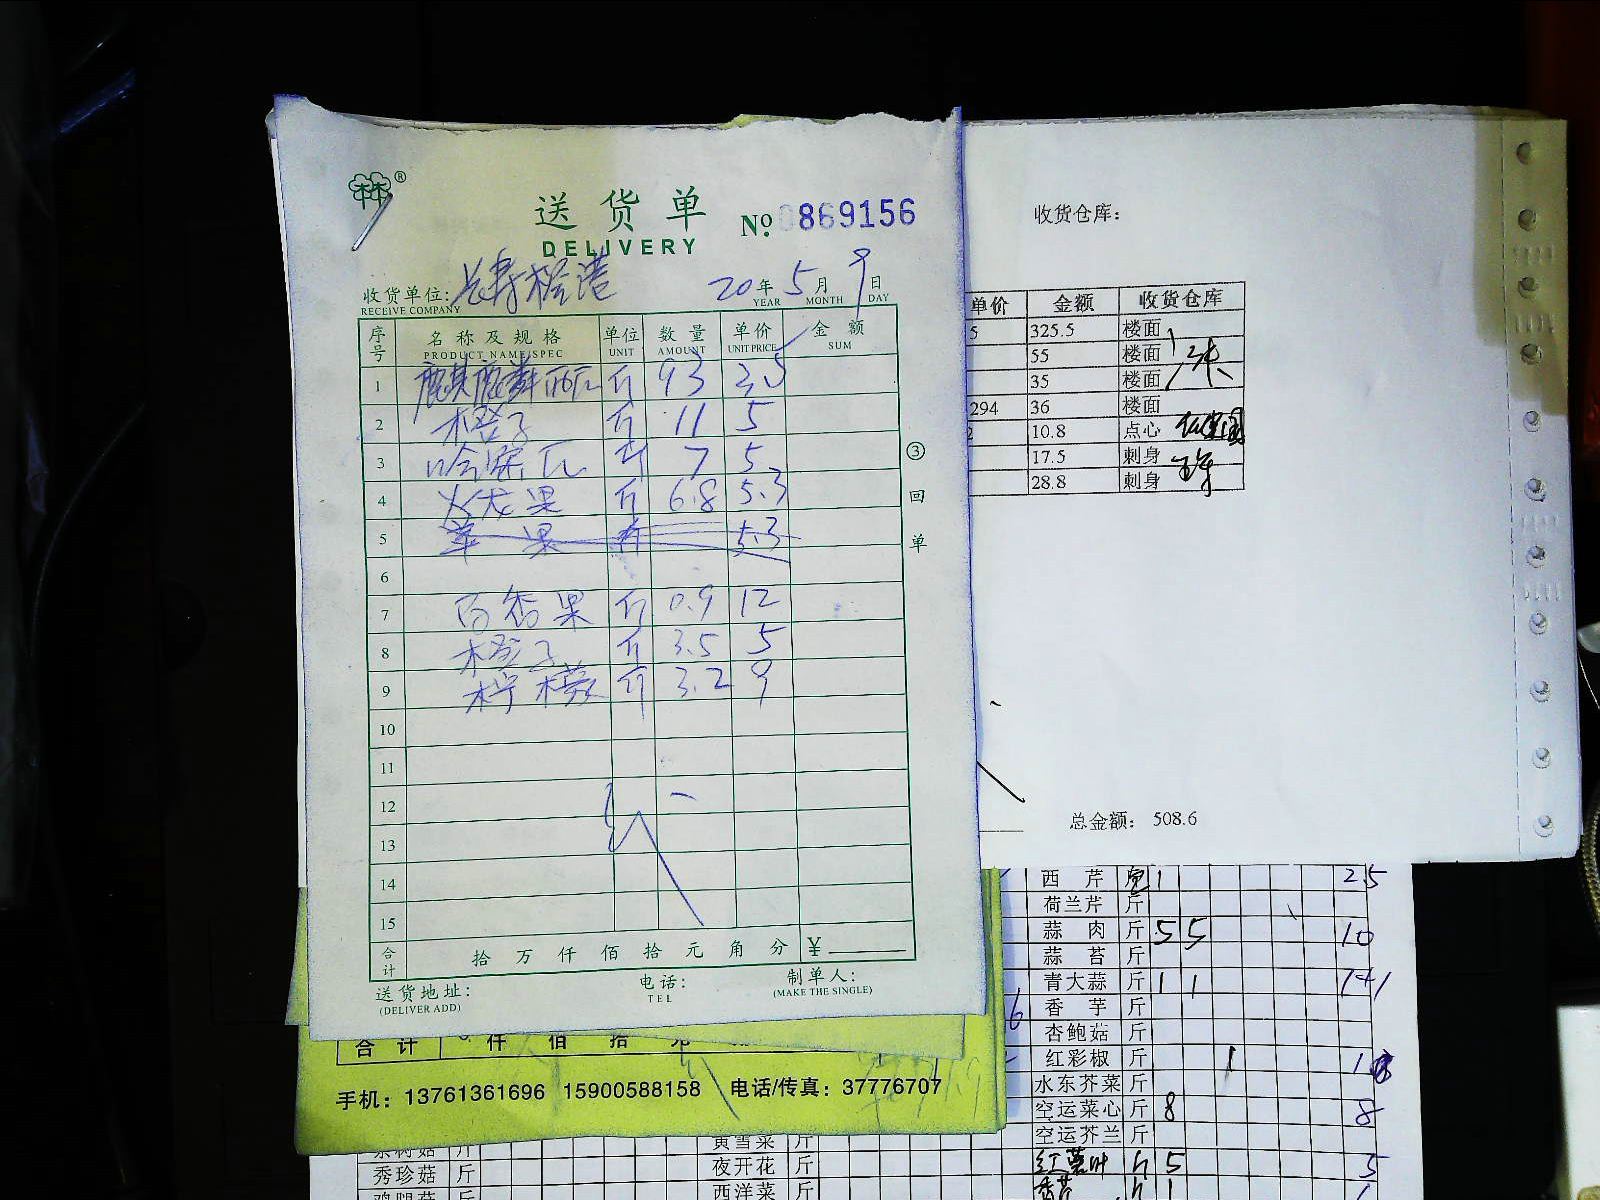 ®
送货单 №0869156
DELIVERY
收货单位: 20年5月9日
RECEIVE COMPANY YEAR MONTH DAY
序号 名称及规格 单位 数量 单价 金额
PRODUCT NAME/SPEC UNIT AMOUNT UNIT PRICE SUM
1 麒麟西瓜 斤 93 3.5
2 橙子 斤 11 5
3 哈密瓜 斤 7 5
4 火龙果 斤 6.8 5.3
5 苹果 斤 5.3
6
7 百香果 斤 0.9 12
8 橙子 斤 3.5 5
9 柠檬 斤 3.2 9
10
11
12
13
14
15
合计 拾万仟佰拾元角分 ¥
送货地址: 电话: 制单人:
(DELIVER ADD) TEL (MAKE THE SINGLE)
③回单
收货仓库:
单价 金额 收货仓库
5 325.5 楼面
55 楼面
35 楼面
294 36 楼面
2 10.8 点心
17.5 刺身
28.8 刺身
总金额: 508.6
合计 仟佰拾元
手机: 13761361696 15900588158 电话/传真: 37776707
西芹 1 25
荷兰芹 斤
蒜肉 斤 5 5 10
蒜苔 斤
青大蒜 斤 1 1 1+1
香芋 斤
杏鲍菇 斤
红彩椒 斤 1
水东芥菜 斤
空运菜心 斤 8 8
空运芥兰 斤
黄雪菜 斤
秀珍菇 斤 夜开花 斤 5 5
鸡腿菇 斤 西洋菜 斤 香芹 1